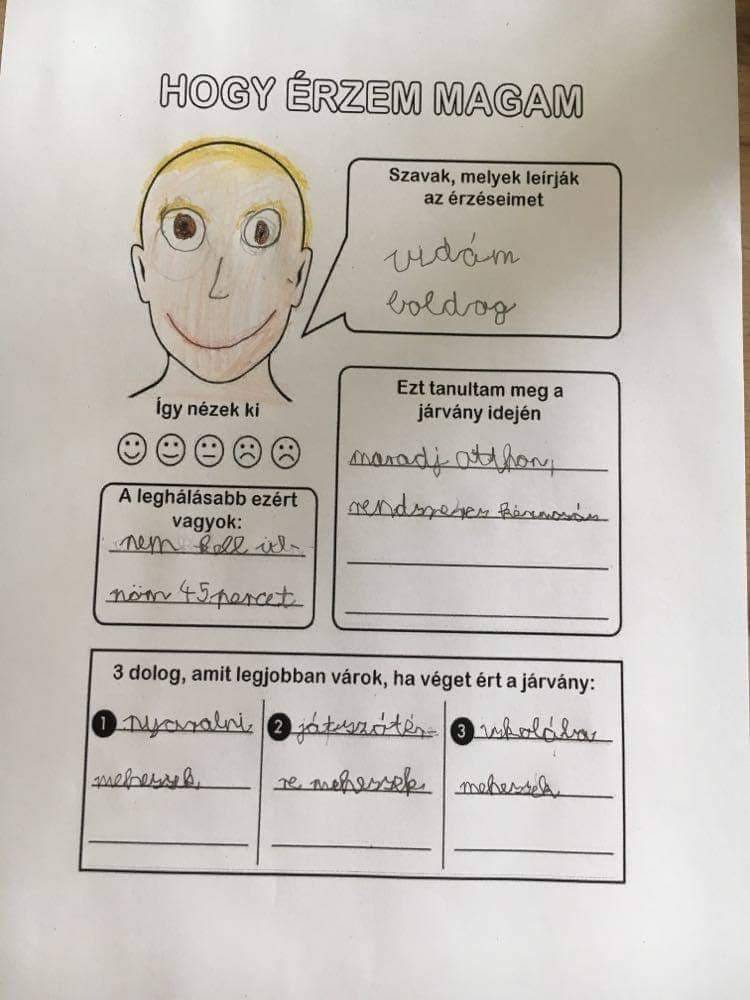 HOGY ÉRZEM MAGAM
Szavak, melyek leírják
az érzéseimet
vidám
boldog
Így nézek ki
Ezt tanultam meg a
járvány idején
maradj otthon,
rendszeres kézmosás
A leghálásabb ezért
vagyok:
nem kell ül-
nöm 45 percet
3 dolog, amit legjobban várok, ha véget ért a járvány:
1 nyaralni
mehessek
2 játszótér-
re mehessek
3 iskolába
mehessek